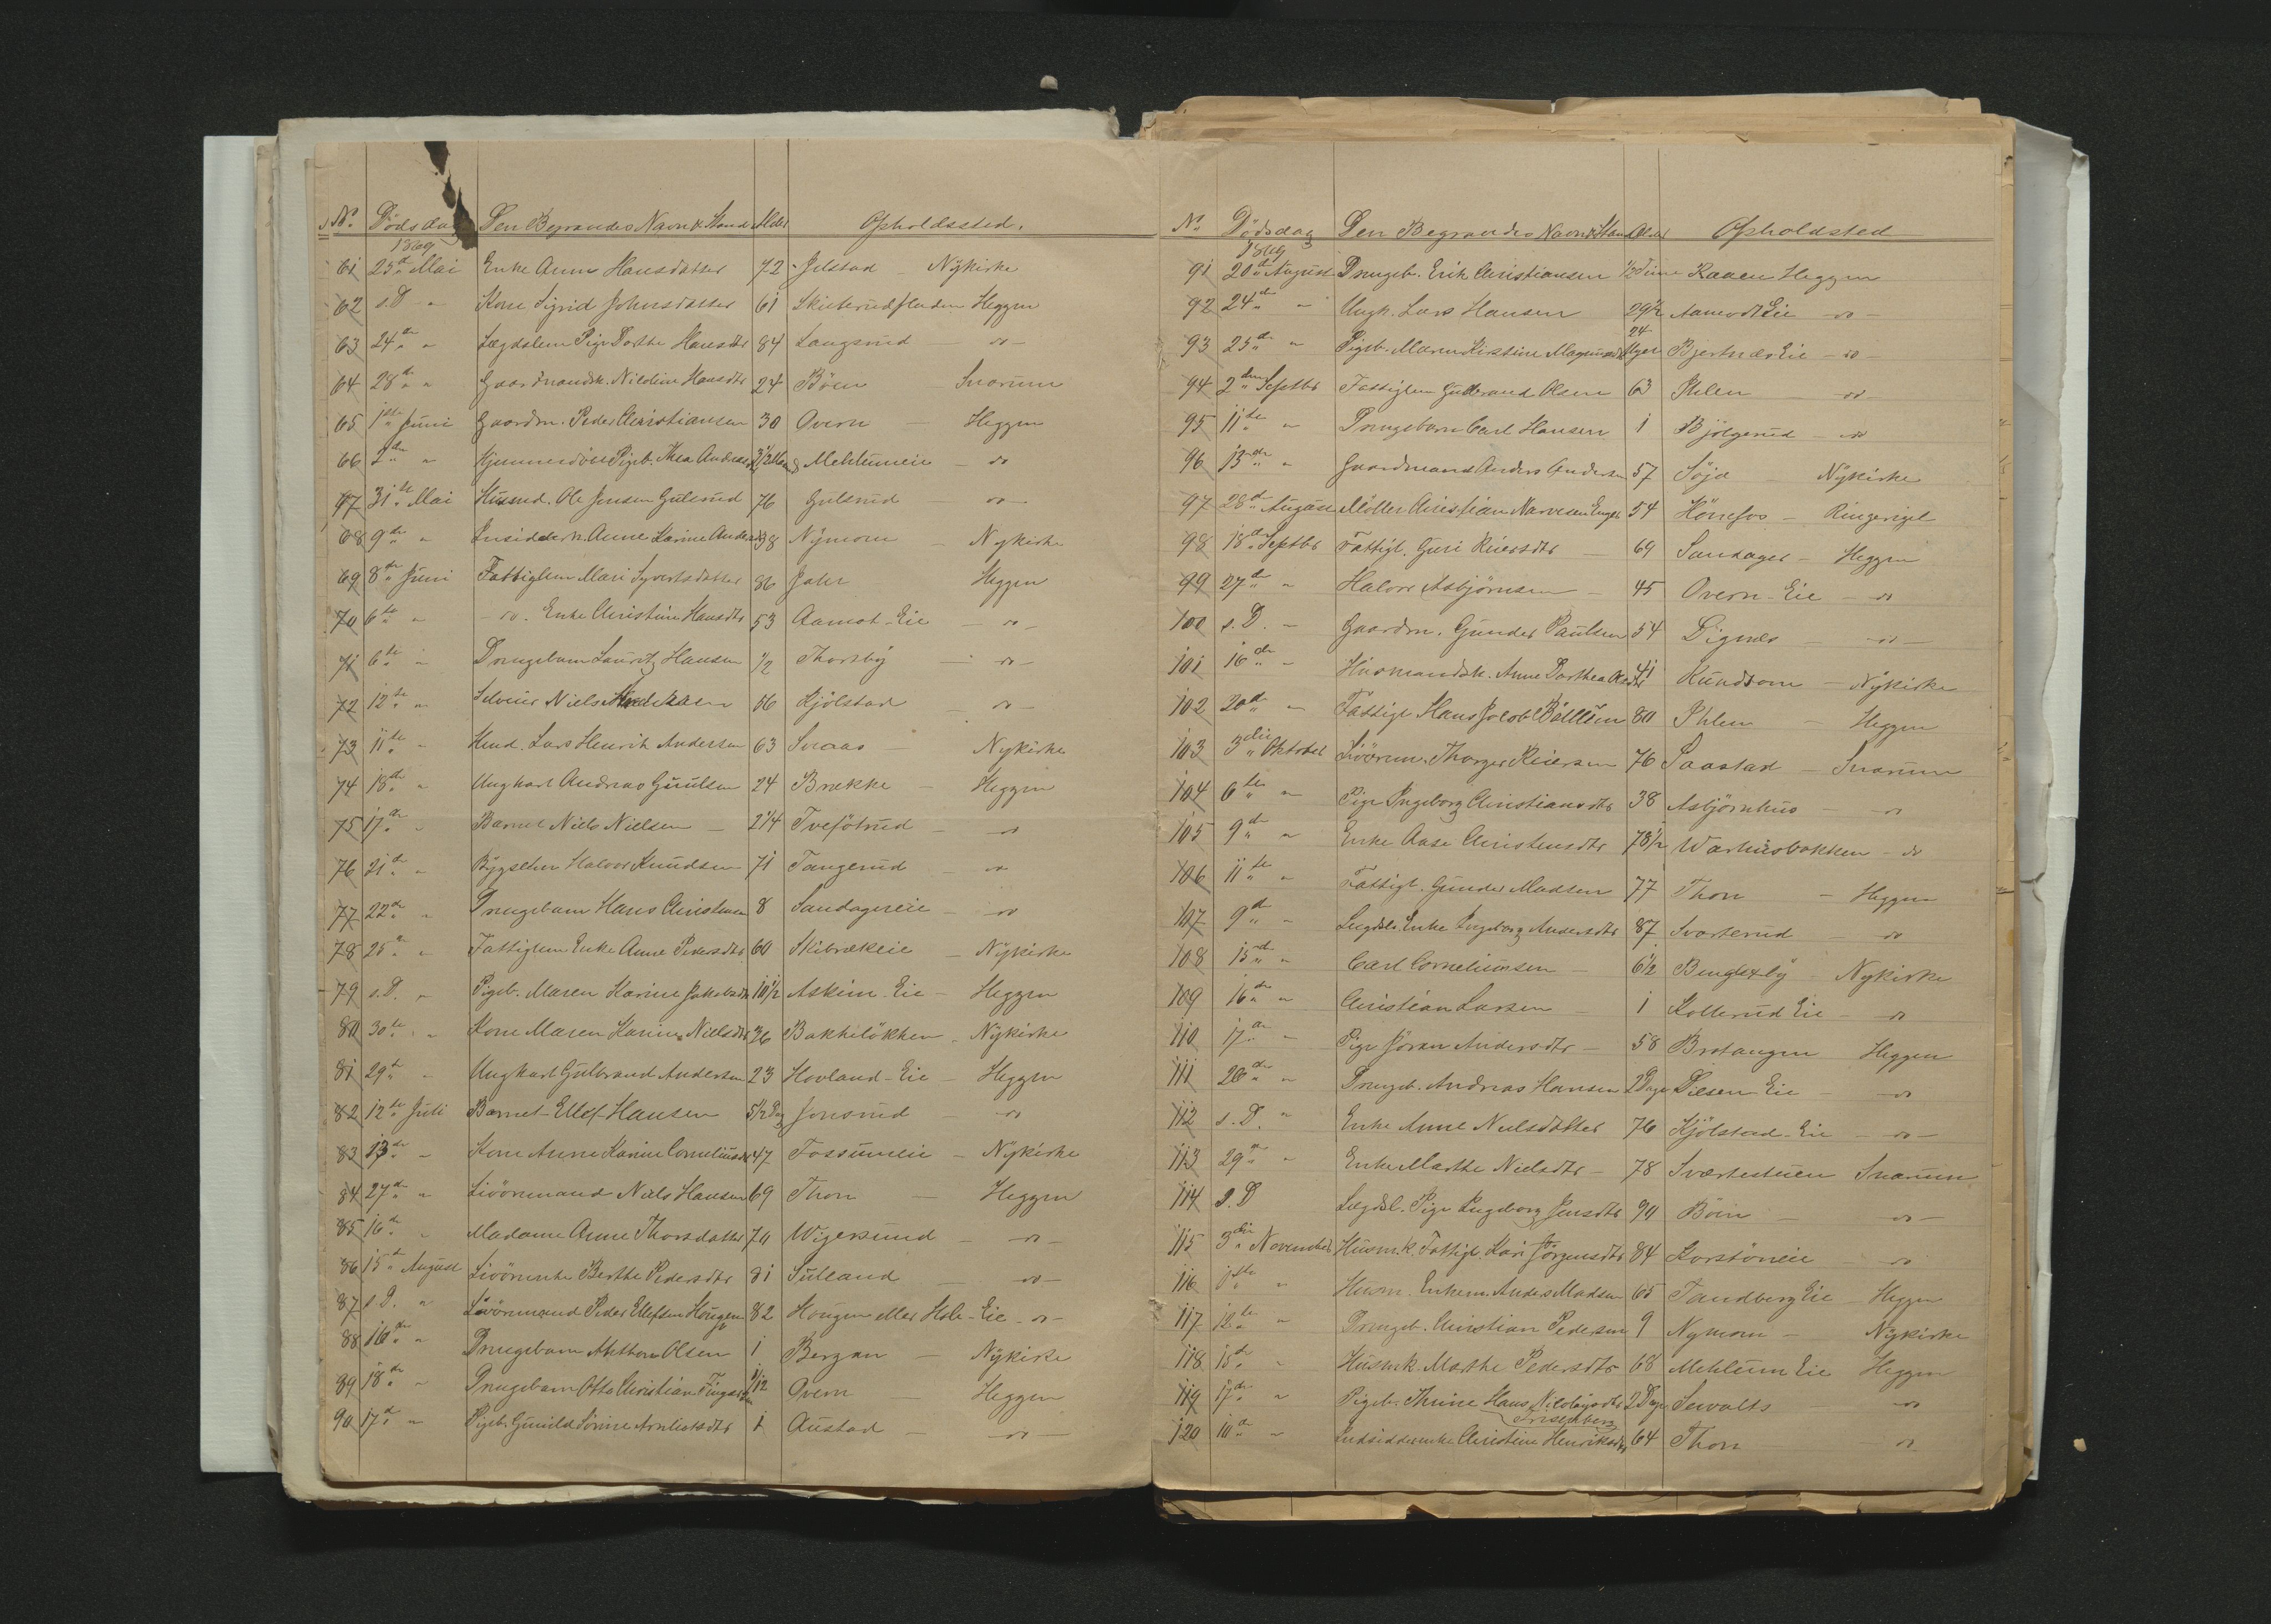 No. Dödsdag Den Begravedes Navn & Stand Alder Opholdssted.
1869
61 25de Mai Enke Anne Hansdatter 72 Jelstad - Nykirke
62 s.D. " Kone Sigrid Johnsdatter 61 Skiterudfladen Heggen
63 24de " Lægdslem Pige Dorthe Hansdtr 84 Langerud - do -
64 28de " Gaardmandsk. Nicoline Hansdtr 24 Böen - Snarum
65 1ste Juni Gaardm. Peder Christiansen 30 Overn - Heggen
66 2den " Hjemmedöbt Pigeb. Thea Andreasd Mehlumeie - do
67 31te Mai Husmd. Ole Jensen Gulsrud 76 Gulsrud do -
68 9de " Insidderk. Anne Karine Andersd 38 Nymoen - Nykirke
69 8de Juni Fattiglem Mari Syvertsdatter 86 Jahr Heggen
70 6te " - do. Enke Christine Hansdtr 53 Aamot-Eie - do -
71 6te " Drengebarn Lauritz Hansen 1/2 Thorsby - do -
72 12te " Selveier Niels 56 Kjölstad - do -
73 11te " Husmd. Lars Henrik Andersen 63 Snaas - Nykirke
74 18de " Ungkarl Andreas Guulsen 24 Brekke - Heggen
75 17de " Barnet Niels Nielsen - 2 1/4 Tvefötrud - do
76 21de " Bygselmn Halvor Knudsen 71 Tangerud - do
77 22de " Drengebarn Hans Christensen 8 Sandagereie - do
78 25de " Fattiglem Enke Anne Pedersdtr 60 Skibrækeie - Nykirke
79 s.D. " Pigeb. Maren Karine Jakobsdtr 10 1/2 Askim-Eie - Heggen
80 30te " Kone Maren Karine Nielsdtr 36 Bakkelökken - Nykirke
81 29de " Ungkarl Gulbrand Andersen 23 Hovland-Eie - Heggen
82 12te Juli Barnet Ellef Hansen 5 1/2 Dag Jonsrud - do
83 13de " Kone Anne Karine Corneliusdtr 47 Fossumeie - Nykirke
84 27de " Livöremand Niels Hansen 69 Thon - Heggen
85 16de " Madame Anne Thorsdatter 70 Wigersund - do -
86 15de August Livörenke Berthe Pedersdtr 81 Sulland - do -
87 s.D. " Livöremand Peder Ellefsen Hougen 82 Hougen eller Hole-Eie - do -
88 16de " Drengebarn Anthon Olsen 1 Bergan - Nykirke
89 18de " Drengebarn Otto Christian 1/12 Overn - Heggen
90 17de " Pigeb. Gunild Sörine Arnliotsdtr 1 Austad - do -
No. Dödsdag Den Begravedes Navn & Stand Alder Opholdsted
1869
91 20de August Drengeb. Erik Christiansen 1/2 Time Raaen Heggen
92 24de " Ungk. Lars Hansen 29 1/2 Aamodt Eie - do -
93 25de " Pigeb. Maren Kirstine 24 Uger Bjertnæs Eie - do -
94 2den Septbr Fattiglem Gudbrand Olsen 63 Ihlen - do
95 11te " Drengebarn Carl Hansen 1 Bjölgerud - do
96 13de " Gaardmand Anders Andersen 57 Söja - Nykirke
97 28de August Möller Christian Narvesen Enger 54 Hönefos - Ringerige
98 18de Septbr Fattigl. Guri Reiersdtr - 69 Sandager - Heggen
99 27de " Halvor Asbjörnsen - 45 Overn-Eie - do
100 s.D. - Gaardm. Gunder Paulsen 54 Dignæs - do -
101 16de " Husmandsk. Anne Dorthea Olsdtr 41 Kundsom - Nykirke
102 20de " Fattigl Hans Jacob 80 Ihlen - Heggen
103 3die Oktober Livörem. Thorger Reiersen 76 Saastad - Snarum
104 6te " Pige Ingeborg Christiansdtr 38 Asbjörnhus - do
105 9de " Enke Aase Christensdtr 73 1/2 Warhusbakken - do
106 11te " Fattigl. Gunder Madsen 77 Thon - Heggen
107 9de " Lægdsl. Enke Ingeborg Andersdtr 87 Svarterud - do
108 15de " Carl Corneliussen - 6 1/2 - Nykirke
109 16de " Christian Larsen - 1 Kollerud Eie - do
110 17de " Pige Jöran Andersdtr - 58 Brotangen Heggen
111 20de " Drengeb. Andreas Hansen 2 Dage Diesen Eie - do
112 s.D. " Enke Anne Nielsdatter 76 Kjölstad-Eie - do -
113 29de " Enke Marthe Nielsdtr - 78 Svartestuen Snarum
114 s.D Lægdsl. Pige Ingeborg Jensdtr 90 Böin - do -
115 3die November Husm.k. Fattigl. Kari Jörgensdtr 84 Korstöneie - do
116 " Husm. Enkem. Anders Madsen 65 Tandberg Eie Heggen
117 12te " Drengeb. Christian Pedersen 9 Nymoen - Nykirke
118 15de " Husm.k. Marthe Pedersdtr 68 Mehlum Eie Heggen
119 17de " Pigeb. Thrine Hans Nicolaysdtr 2 Dage Sevalts do
120 10de " Indsidderenke Christine Henriksdtr 64 Thon do